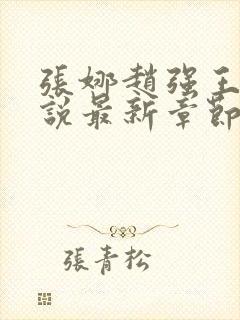 張娜趙强王
說最新章節
張青松